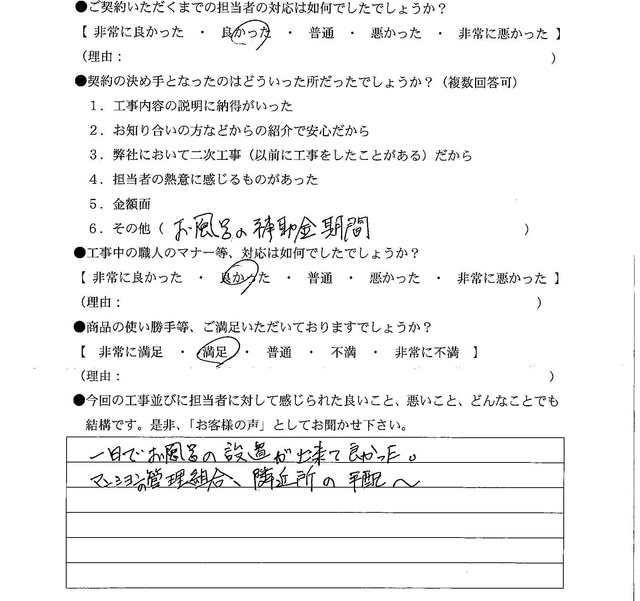 ●ご契約いただくまでの担当者の対応は如何でしたでしょうか？
【 非常に良かった ・ 良かった ・ 普通 ・ 悪かった ・ 非常に悪かった 】
（理由： ）
●契約の決め手となったのはどういった所だったでしょうか？（複数回答可）
１．工事内容の説明に納得がいった
２．お知り合いの方などからの紹介で安心だから
３．弊社において二次工事（以前に工事をしたことがある）だから
４．担当者の熱意に感じるものがあった
５．金額面
６．その他（ お風呂の補助金期間 ）
●工事中の職人のマナー等、対応は如何でしたでしょうか？
【 非常に良かった ・ 良かった ・ 普通 ・ 悪かった ・ 非常に悪かった 】
（理由： ）
●商品の使い勝手等、ご満足いただいておりますでしょうか？
【 非常に満足 ・ 満足 ・ 普通 ・ 不満 ・ 非常に不満 】
（理由： ）
●今回の工事並びに担当者に対して感じられた良いこと、悪いこと、どんなことでも
結構です。是非、「お客様の声」としてお聞かせ下さい。
一日でお風呂の設置が出来て良かった。
マンションの管理組合、隣近所の手配へ